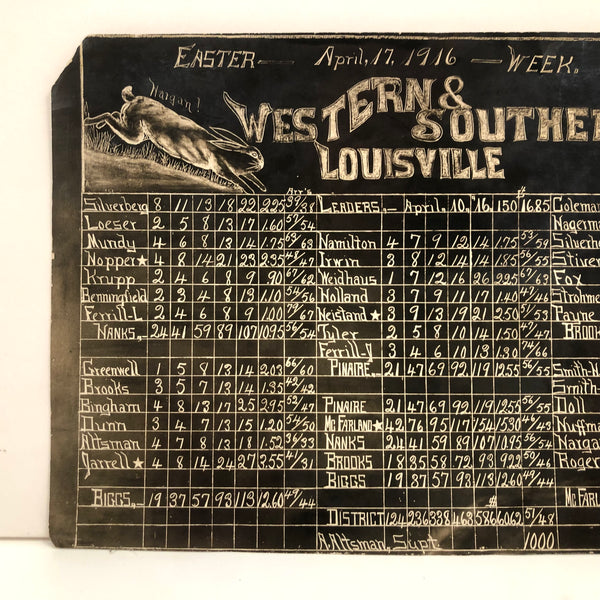 EASTER — April, 17, 1916 — WEEK.
Nargan!
WESTERN & SOUTHE
LOUISVILLE
Arr's
Silverberg 8 11 13 18 22 2.25 39/38 LEADERS,— April, 10, '16. 150 16.85 Coleman
Loeser 2 5 8 13 17 1.60 57/54 Nagerma
Mundy 4 6 8 13 14 1.75 69/63 Hamilton 4 7 9 12 14 1.75 53/59 Silverbe
Hopper★ 4 8 14 21 23 2.35 46/47 Irwin 3 8 12 14 14 1.85 56/55 Stiver
Krupp 2 4 6 8 9 .90 67/62 Weidhaus 1 7 12 16 26 2.25 67/63 Fox
Benningfield 2 3 4 8 13 1.10 54/56 Holland 3 7 9 11 17 1.40 47/46 Strohme
Ferrill-L 2 4 6 8 9 1.00 79/67 Neistand★ 3 9 13 19 21 2.50 51/53 Payne
HANKS,— 24 41 59 89 107 10.95 56/54 Tyler 2 5 8 10 14 1.50 47/47 BROOK
Ferrill-J 3 4 6 10 13 1.30 74/66
Greenwell 1 5 8 13 14 2.03 66/60 PINAIRE,— 21 47 69 92 119 12.55 56/55 Smith-H
Brooks 3 5 7 13 14 1.35 42/42 Smith-
Bingham 4 8 13 17 25 2.95 52/47 PINAIRE 21 47 69 92 119 12.55 56/55 Doll
Dunn 3 4 7 13 15 1.20 54/50 Mc FARLAND★ 42 76 95 117 154 15.30 44/43 Huffma
Altsman 4 7 8 13 18 1.52 36/33 HANKS 24 41 59 89 107 10.95 56/54 Narga
Jarrell★ 4 8 14 24 27 3.55 41/31 BROOKS 18 35 58 72 93 9.22 50/46 Roger
BIGGS 19 37 57 93 113 12.60 49/44
BIGGS,— 19 37 57 93 113 12.60 49/44 Mc FARL
DISTRICT 124 236 338 463 586 60.62 51/48
A. Altsman, Supt. 1000